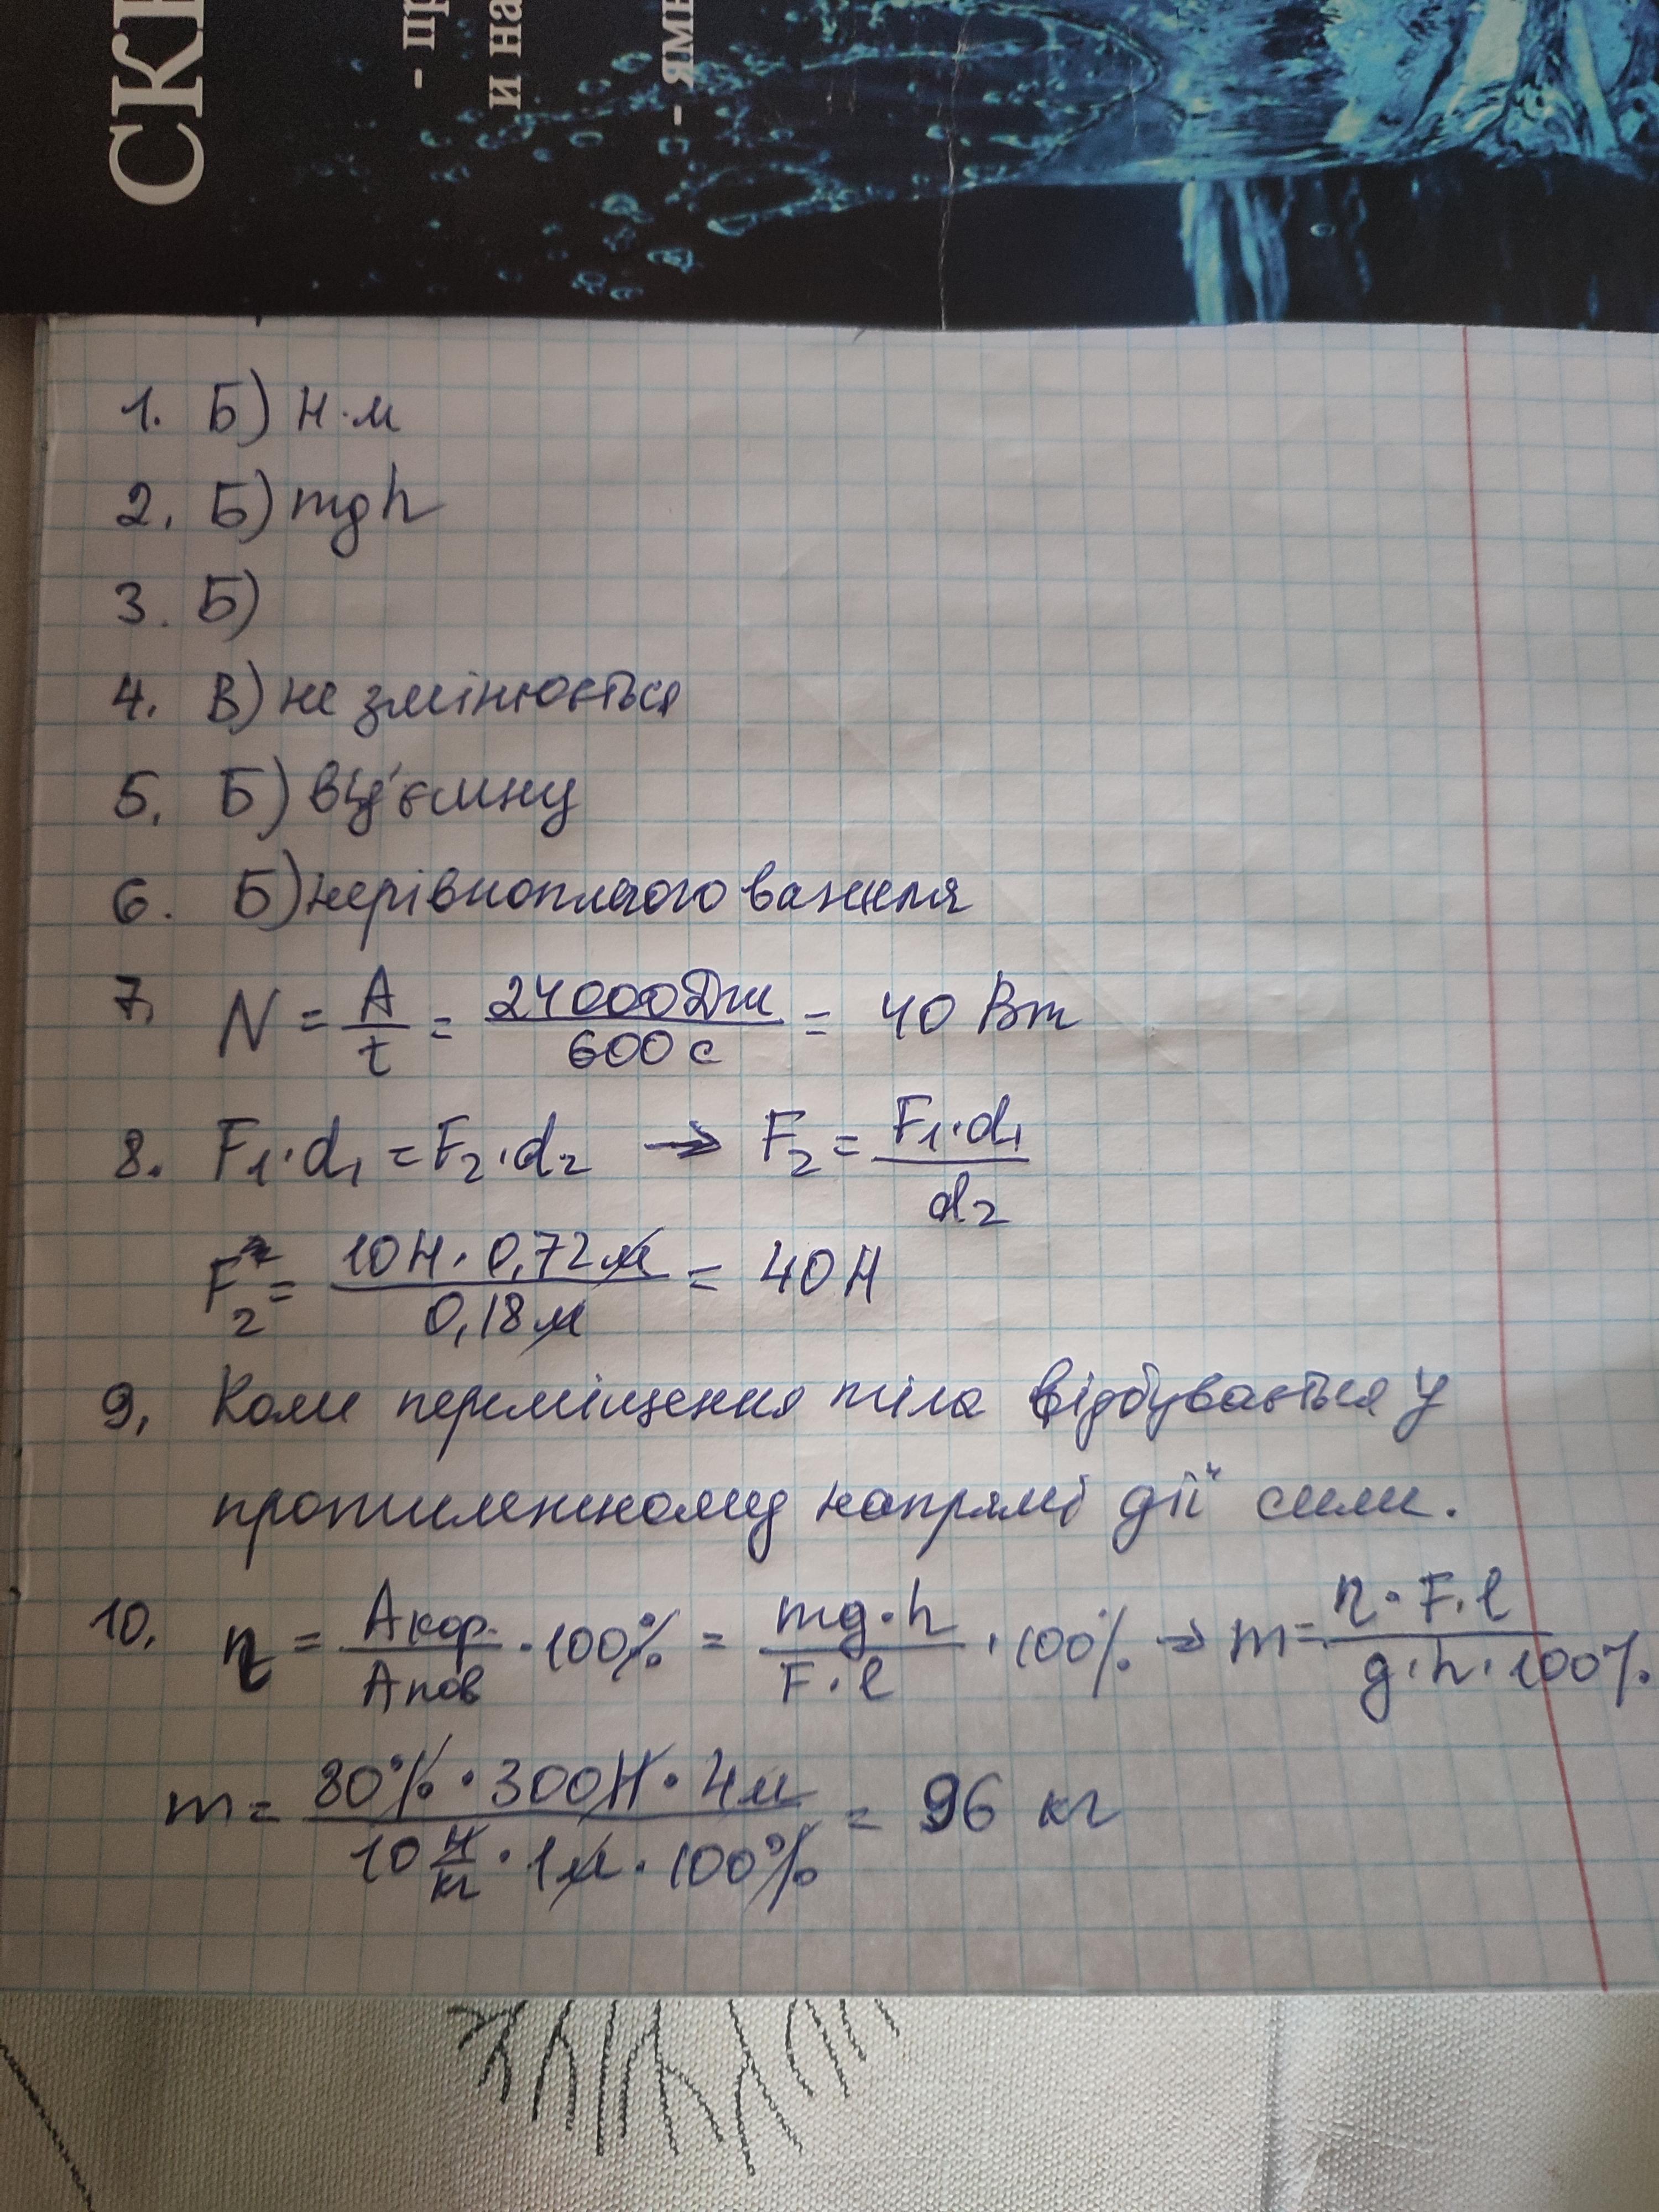 СК
- пр
и на
- ямк
1. Б) Н·м
2. Б) mgh
3. Б)
4. В) не змінюється
5. Б) від'ємну
6. Б) нерівноплечого важеля
7. N = A/t = 24000Дж/600с = 40 Вт
8. F₁·d₁ = F₂·d₂ → F₂ = F₁·d₁/d₂
F₂ = 10Н·0,72м/0,18м = 40Н
9. Коли переміщення тіла відбувається у
протилежному напрямі дії сили.
10. η = Aкор./Aпов · 100% = mg·h/F·l · 100% → m = η·F·l/g·h·100%
m = 80%·300Н·4м/10 Н/кг·1м·100% = 96 кг